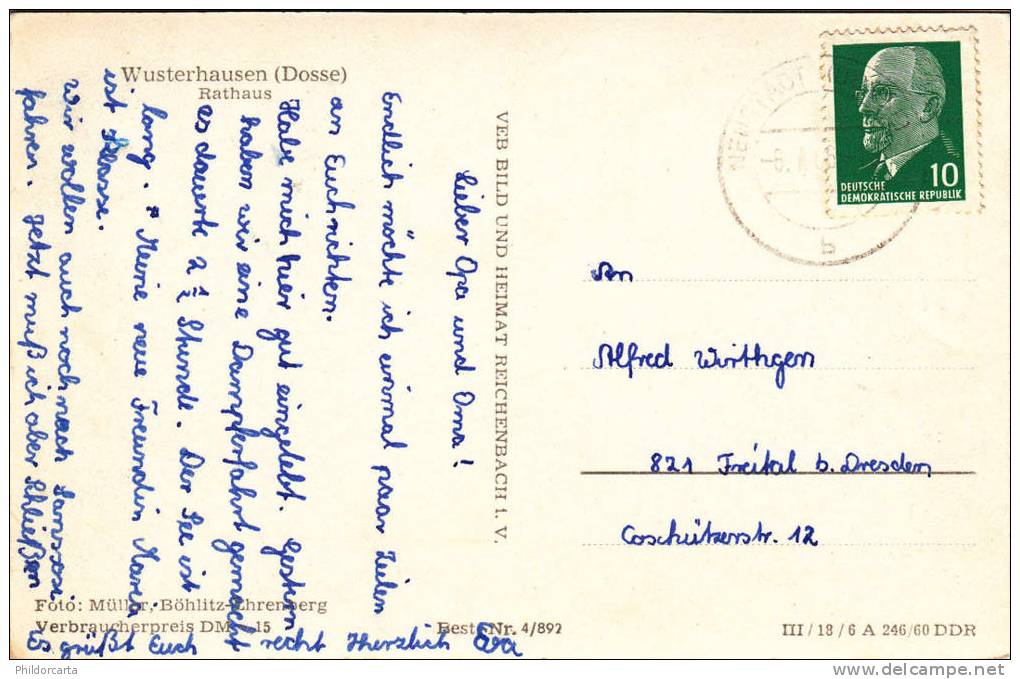 Wusterhausen (Dosse)
Rathaus
Lieber Opa und Oma!
Endlich möchte ich einmal paar Zeilen
an Euch richten.
Habe mich hier gut eingelebt. Gestern
haben wir eine Dampferfahrt gemacht
es dauerte 2 1/2 Stunde. Der See ist
lang. Meine neue Freundin Maren
ist Klasse.
wir wollen auch noch nach Sanssosi
fahren. Jetzt muß ich aber schließen
Es grüßt Euch recht Herzlich Eva
Foto: Müller, Böhlitz-Ehrenberg
Verbraucherpreis DM -,15
Best.-Nr. 4/892
VEB BILD UND HEIMAT REICHENBACH i. V.
10
DEUTSCHE
DEMOKRATISCHE REPUBLIK
b
An
Alfred Wirthgen
821 Freital b. Dresden
Coschützerstr. 12
III/18/6 A 246/60 DDR
Phildorcarta
delcampe.net